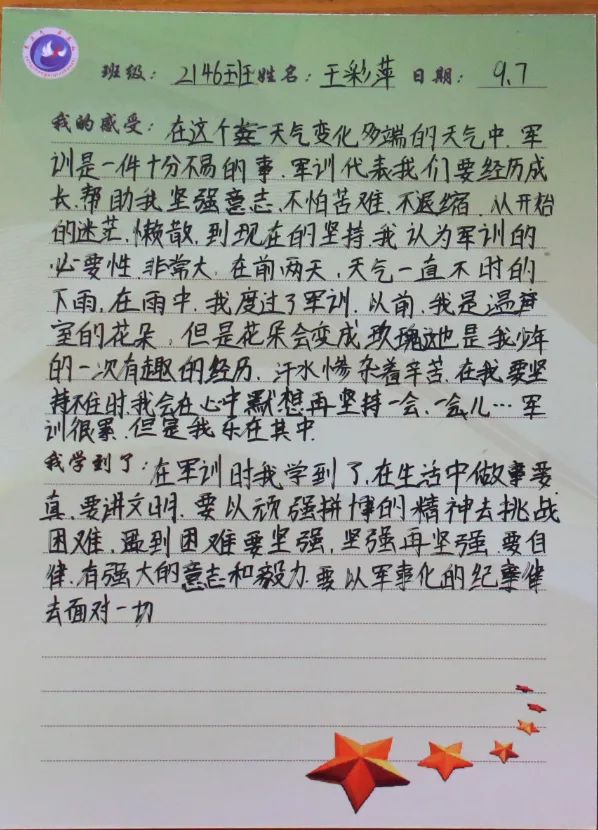 班级：2146班 姓名：王彩萍 日期：9.7
我的感受：在这个天气变化多端的天气中.军
训是一件十分不易的事.军训代表我们要经历成
长.帮助我坚强意志.不怕苦难.不退缩.从开始
的迷茫.懒散.到现在的坚持.我认为军训的
必要性.非常大.在前两天.天气一直不时的
下雨.在雨中.我度过了军训.以前.我是温
室的花朵.但是花朵会变成玫瑰这也是我少年
的一次有趣的经历.汗水惨杂着辛苦.在我要坚
持不住时.我会在心中默想再坚持一会.一会儿…军
训很累.但是我乐在其中.
我学到了：在军训时我学到了.在生活中做事要
真.要讲文明.要以顽强拼博的精神去挑战
困难.遇到困难要坚强.坚强再坚强.要自
律.有强大的意志和毅力.要以军事化的纪律
去面对一切